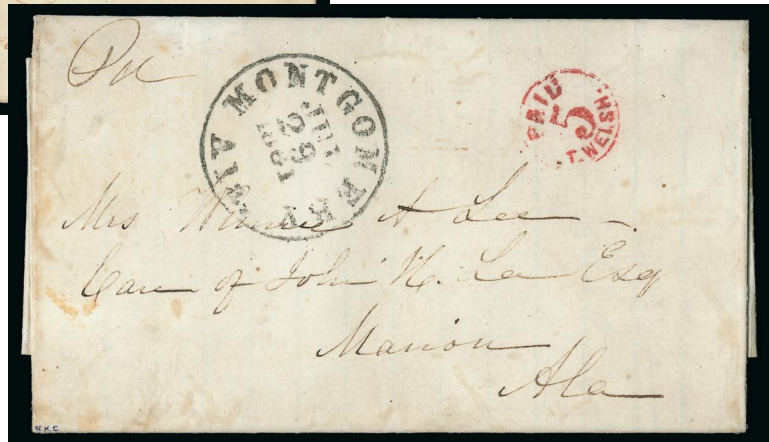 Pd
MONTGOMERY ALA
JUL
29
1861
PAID
5
T. WELSH.
Mrs A Lee
Care of John H. Lee Esq
Marion
Ala
W.H.C